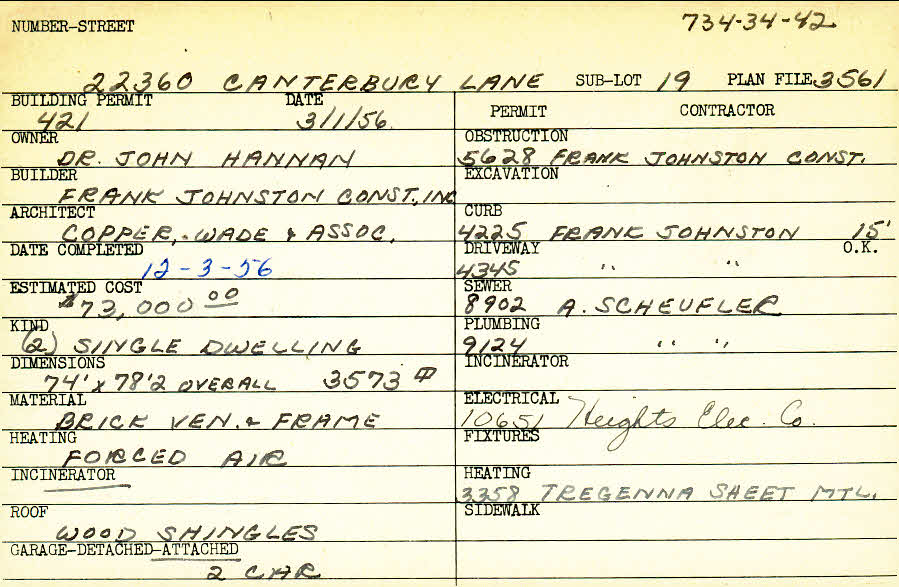 NUMBER-STREET 734-34-42
22360 CANTERBURY LANE SUB-LOT 19 PLAN FILE 3561
BUILDING PERMIT DATE
421 3/1/56
OWNER
DR. JOHN HANNAN
BUILDER
FRANK JOHNSTON CONST., INC
ARCHITECT
COPPER, WADE & ASSOC.
DATE COMPLETED
12-3-56
ESTIMATED COST
$73,000 00
KIND
(2) SINGLE DWELLING
DIMENSIONS
74' x 78'2 OVERALL 3573
MATERIAL
BRICK VEN. & FRAME
HEATING
FORCED AIR
INCINERATOR
ROOF
WOOD SHINGLES
GARAGE-DETACHED-ATTACHED
2 CAR
PERMIT CONTRACTOR
OBSTRUCTION
5628 FRANK JOHNSTON CONST.
EXCAVATION
CURB
4225 FRANK JOHNSTON 15'
DRIVEWAY O.K.
4345 " "
SEWER
8902 A. SCHEUFLER
PLUMBING
9124 " "
INCINERATOR
ELECTRICAL
10651 Heights Elec. Co.
FIXTURES
HEATING
3358 TREGENNA SHEET MTL.
SIDEWALK